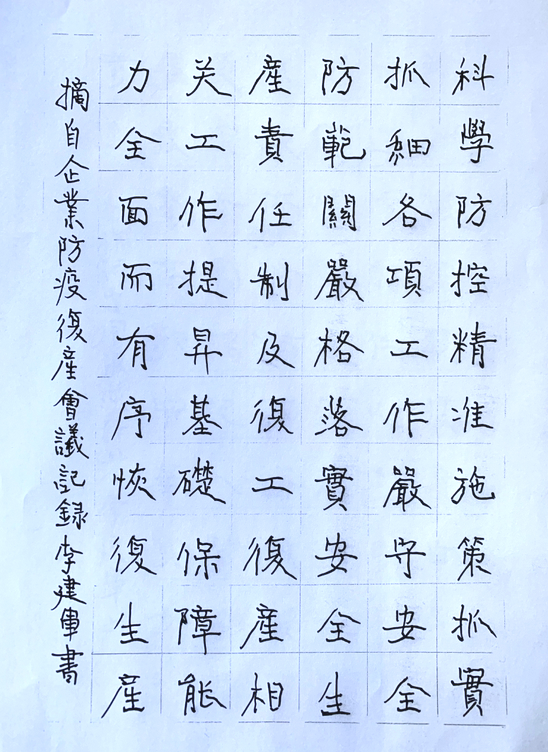 科學防控精准施策抓實
抓細各項工作嚴守安全
防範關嚴格落實安全生
産責任制及復工復産相
关工作提昇基礎保障能
力全面而有序恢復生産
摘自企業防疫復産會議記録李建軍書